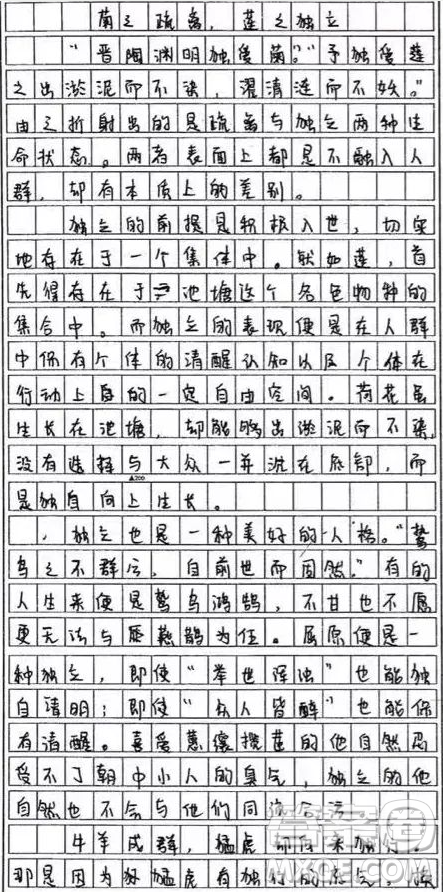 菊之疏离，莲之独立
“晋陶渊明独爱菊。”予独爱莲
之出淤泥而不染，濯清涟而不妖。
由之折射出的是疏离与独立两种生
命状态。两者表面上都是不融入人
群，却有本质上的差别。
独立的前提是积极入世，切实
地存在于一个集体中。就如莲，首
先得存在于池塘这个各色物种的
集合中。而独立的表现便是在人群
中保有个体的清醒认知以及个体在
行动上的一定自由空间。荷花虽
生长在池塘，却能够出淤泥而不染，
没有选择与大众一并沉在底部，而
▲200
是独自向上生长。
独立也是一种美好的人格。“鸷
鸟之不群兮，自前世而固然。”有的
人生来便是鸷鸟鸿鹄，不甘也不愿
更无法与燕鹊为伍。屈原便是一
种独立，即使“举世浑浊”也能独
自清明；即使“众人皆醉”也能保
有清醒。喜爱蕙纕揽茝的他自然忍
受不了朝中小人的臭气，独立的他
自然也不会与他们同流合污
牛羊成群，猛虎却向来独行，
那是因为猛虎有独行的底气，
答案圈
MXQE.COM